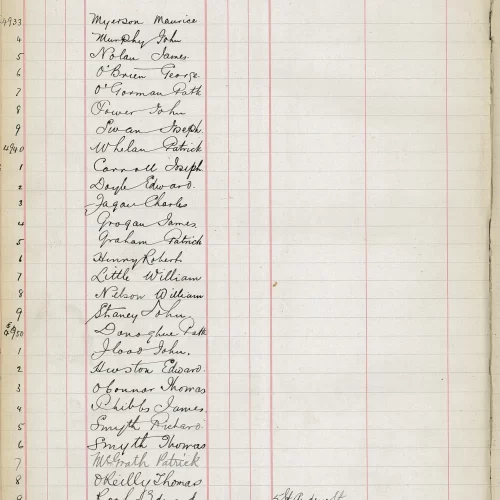 4933 Myerson Maurice
4 Murphy John
5 Nolan James
6 O'Brien George
7 O'Gorman Patk
8 Power John
9 Swan Joseph
4940 Whelan Patrick
1 Carroll Joseph
2 Doyle Edward.
3 Fagan Charles
4 Grogan James
5 Graham Patrick
6 Henry Robert
7 Little William
8 Nelson William
9 Stanley John
4950 Donoghue Patk
1 Flood John.
2 Huston Edward.
3 O'Connor Thomas
4 Phibbs James
5 Smyth Richard
6 Smyth Thomas
7 McGrath Patrick
8 O'Reilly Thomas